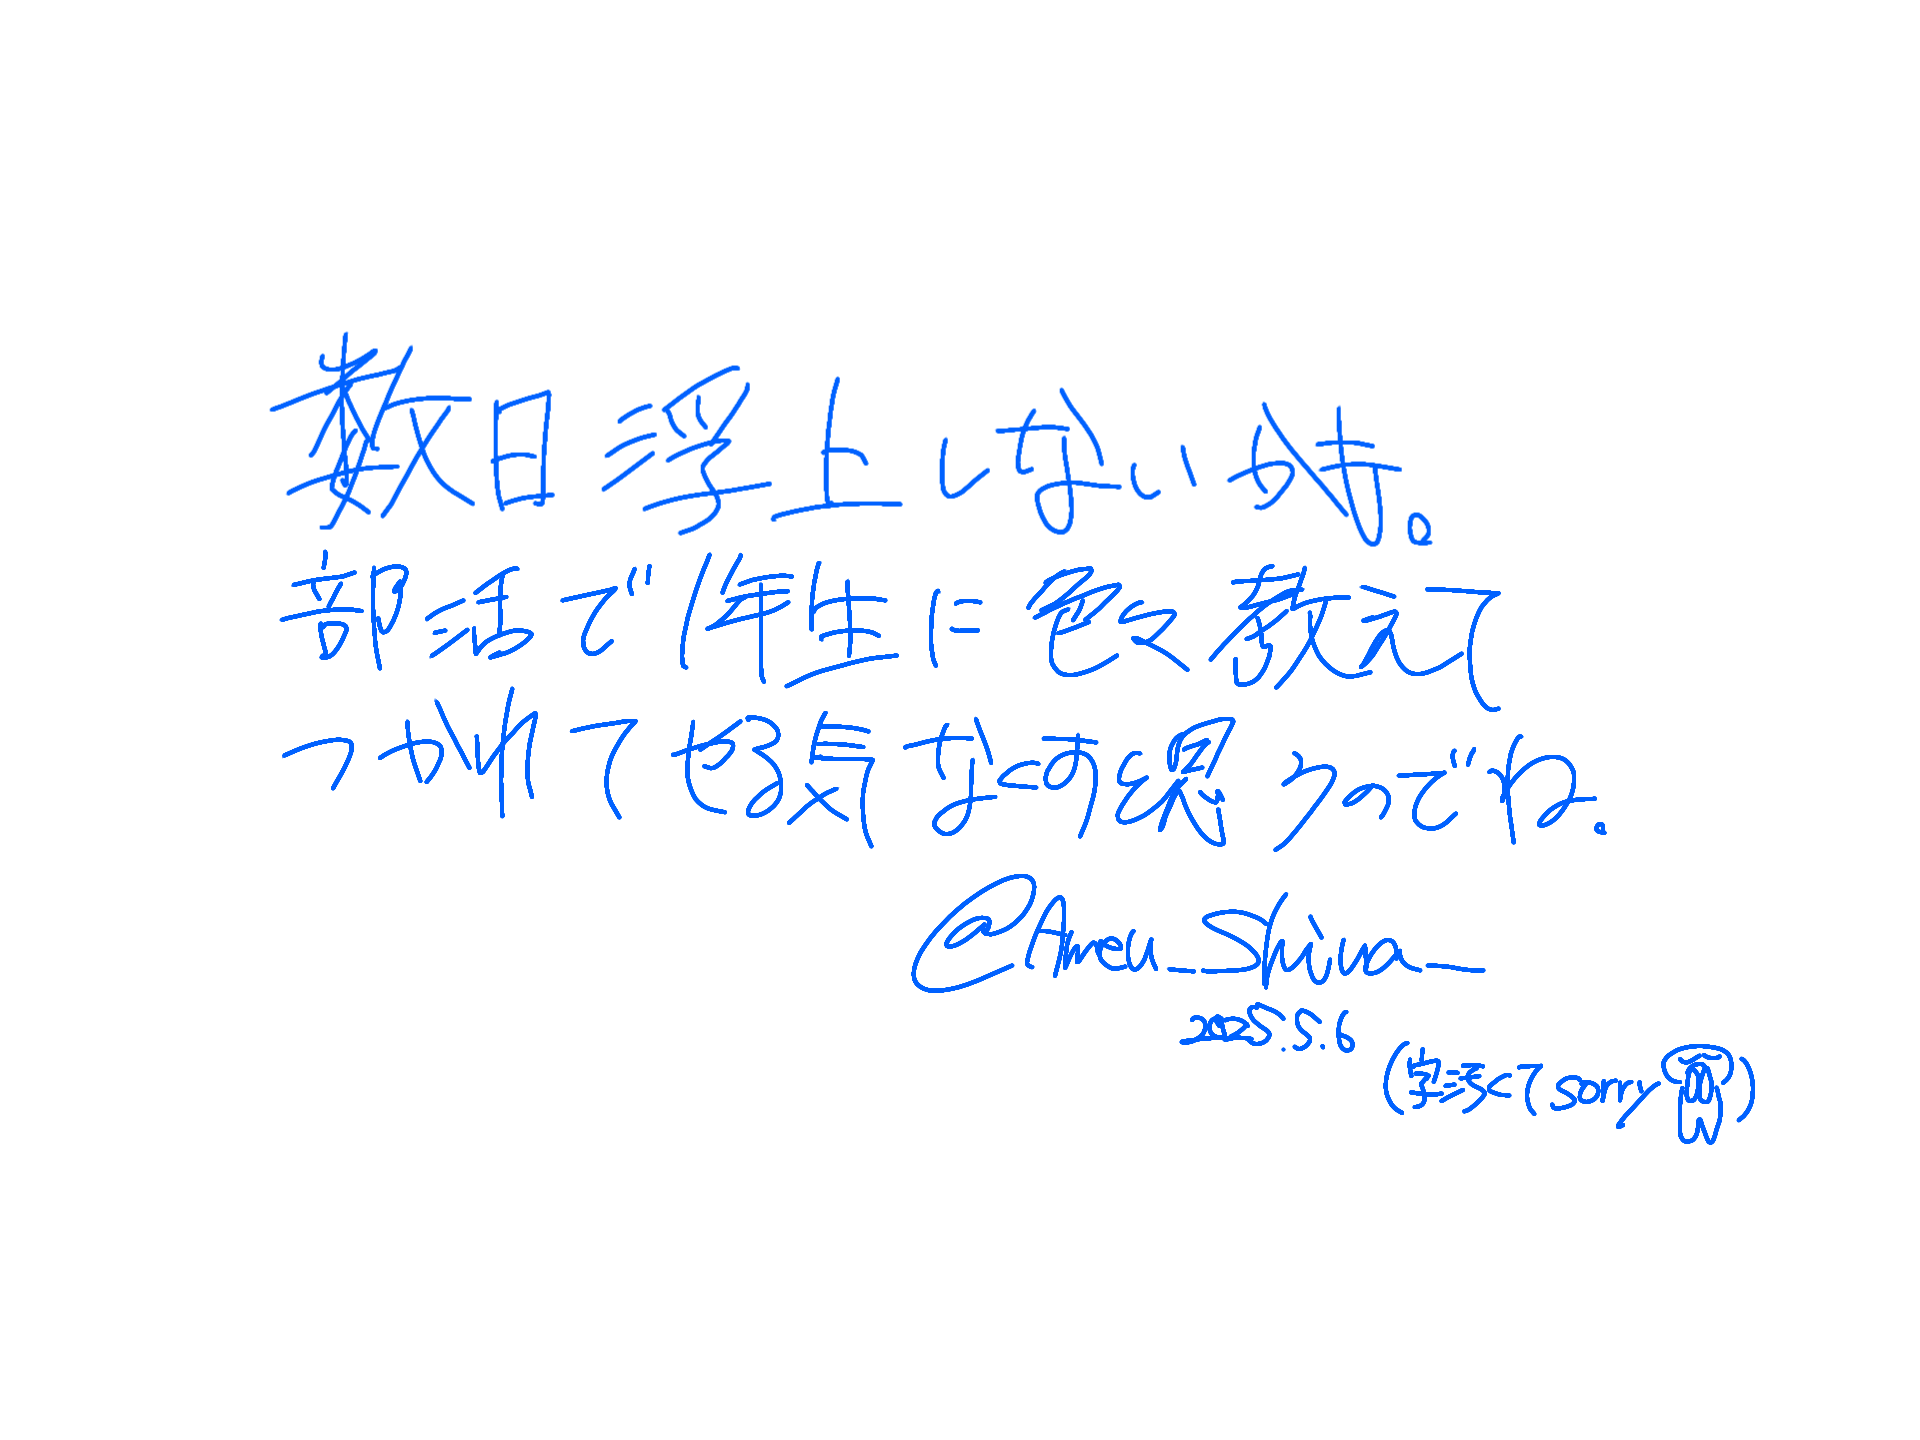 数日浮上しないかも。
部活で1年生に色々教えて
つかれてやる気なくすと思うのでね。
@Ameu_Shiua_
2025.5.6
(字汚くてsorry)